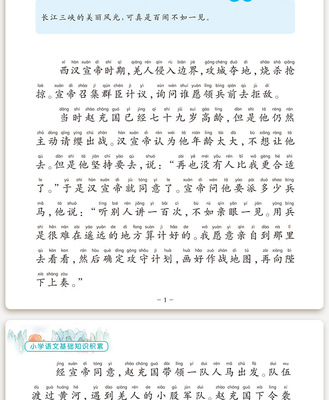 长江三峡的美丽风光，可真是百闻不如一见。
西汉宣帝时期，羌人侵入边界，攻城夺地，烧杀抢
掠。宣帝召集群臣计议，询问谁愿领兵前去拒敌。
当时赵充国已经七十九岁高龄，但是他仍然
主动请缨出战。汉宣帝认为他年龄太大，不想让他
去。但是他坚持要去，说：“再也没有人比我更合适
了。”于是汉宣帝就同意了。宣帝问他要派多少兵
马，他说：“听别人讲一百次，不如亲眼一见。用兵
是很难在遥远的地方算计好的。我愿意亲自到那里
去看看，然后确定攻守计划，画好作战地图，再向陛
下上奏。”
- 1 -
小学语文基础知识积累
经宣帝同意，赵充国带领一队人马出发。队伍
渡过黄河，遇到羌人的小股军队。赵充国下令袭